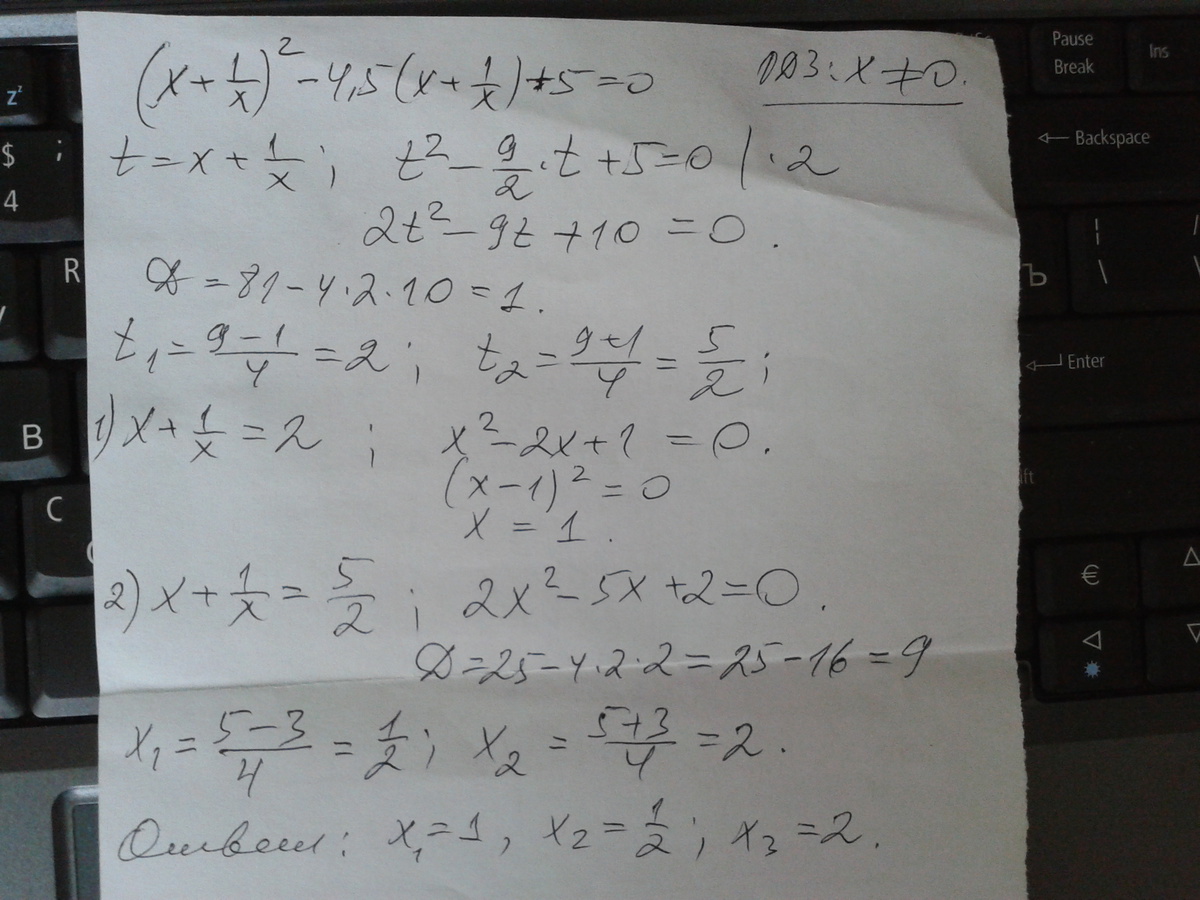 (x + 1/x)² - 4,5(x + 1/x) + 5 = 0   ОДЗ: x ≠ 0.
t = x + 1/x ;   t² - 9/2 · t + 5 = 0 | · 2
2t² - 9t + 10 = 0.
D = 81 - 4 · 2 · 10 = 1.
t₁ = (9 - 1)/4 = 2 ;   t₂ = (9 + 1)/4 = 5/2 ;
1) x + 1/x = 2 ;   x² - 2x + 1 = 0.
(x - 1)² = 0
x = 1.
2) x + 1/x = 5/2 ;   2x² - 5x + 2 = 0.
D = 25 - 4 · 2 · 2 = 25 - 16 = 9
x₁ = (5 - 3)/4 = 1/2 ;   x₂ = (5 + 3)/4 = 2.
Ответ: x₁ = 1, x₂ = 1/2 ; x₃ = 2.
Pause
Break
Ins
Backspace
Enter
Ъ
\
€
z
$
;
4
R
B
C